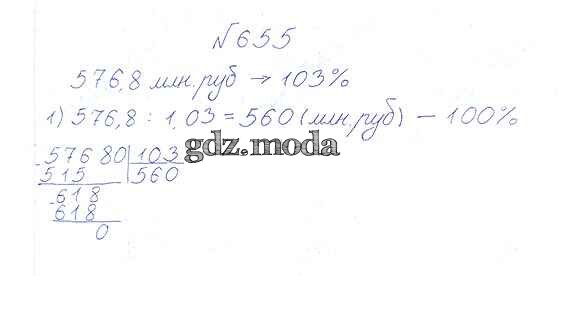 №655
576,8 млн.руб → 103%
1) 576,8 : 1,03 = 560 (млн.руб) – 100%
gdz.moda
57680 103
515 560
618
618
0